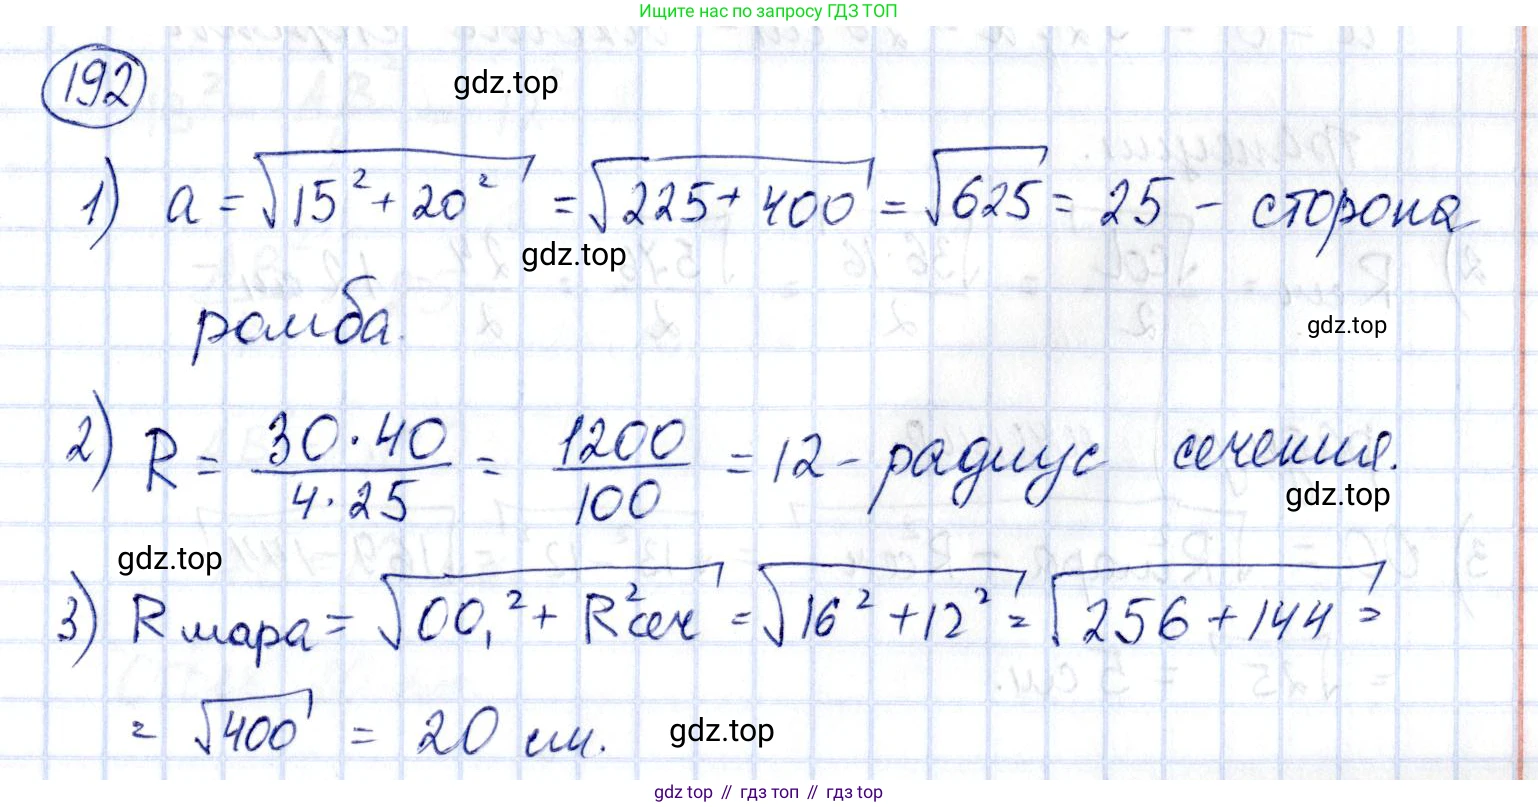 Ищите нас по запросу ГДЗ ТОП
192
gdz.top
1) a = √(15² + 20²) = √(225 + 400) = √625 = 25 - сторона
gdz.top
ромба.
gdz.top
2) R = (30 · 40)/(4 · 25) = 1200/100 = 12 - радиус сечения.
gdz.top
gdz.top
3) R шара = √(OO₁² + R²сеч) = √(16² + 12²) = √(256 + 144) =
= √400 = 20 см.
gdz.top
gdz top // гдз топ // гдз top